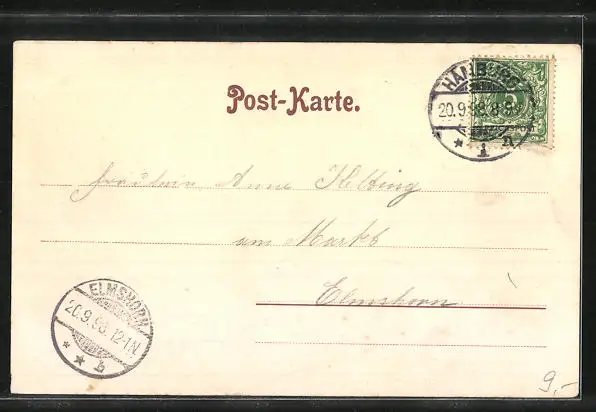 Post-Karte.
HAMBURG
20.9.98. 8-9
* 1 n
Fräulein Anna Helbing
am Markt
Elmshorn
ELMSHORN
20.9.98. 12-1N.
* * b
9,-